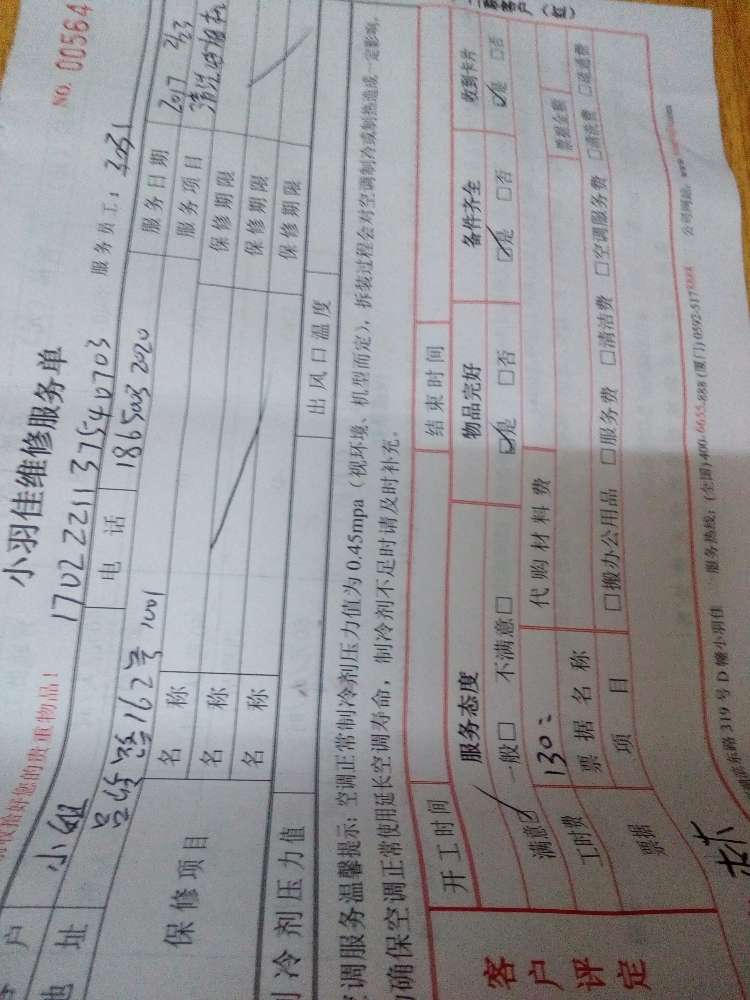 NO. 00564
小羽佳维修服务单
收拾好您的贵重物品！
1702221137540703
服务员工：
户 小姐 电话 186 5003 2020 服务日期 2017 2/23
地址 162号 1001 服务项目 清洗
保修项目 名称 保修期限
名称 保修期限
名称 保修期限
制冷剂压力值 出风口温度
空调服务温馨提示：空调正常制冷剂压力值为 0.45mpa（视环境、机型而定），拆装过程会对空调制冷或制热造成一定影响，
为确保空调正常使用延长空调寿命，制冷剂不足时请及时补充。
二联客户（红）
客户评定
开工时间 结束时间
服务态度 物品完好 备件齐全 收到卡片
满意☑ 一般□ 不满意□ ☑是 □否 ☑是 □否 ☑是 □否
工时费 130 代购材料费
票据 票据名称 票据金额
项目 □搬办公用品 □服务费 □清洁费 □空调服务费 □清洗费 □疏通费
东路 319 号 D 幢小羽佳 服务热线：(全国)400-6655-888 (厦门)0592-517 公司网站：www. .com